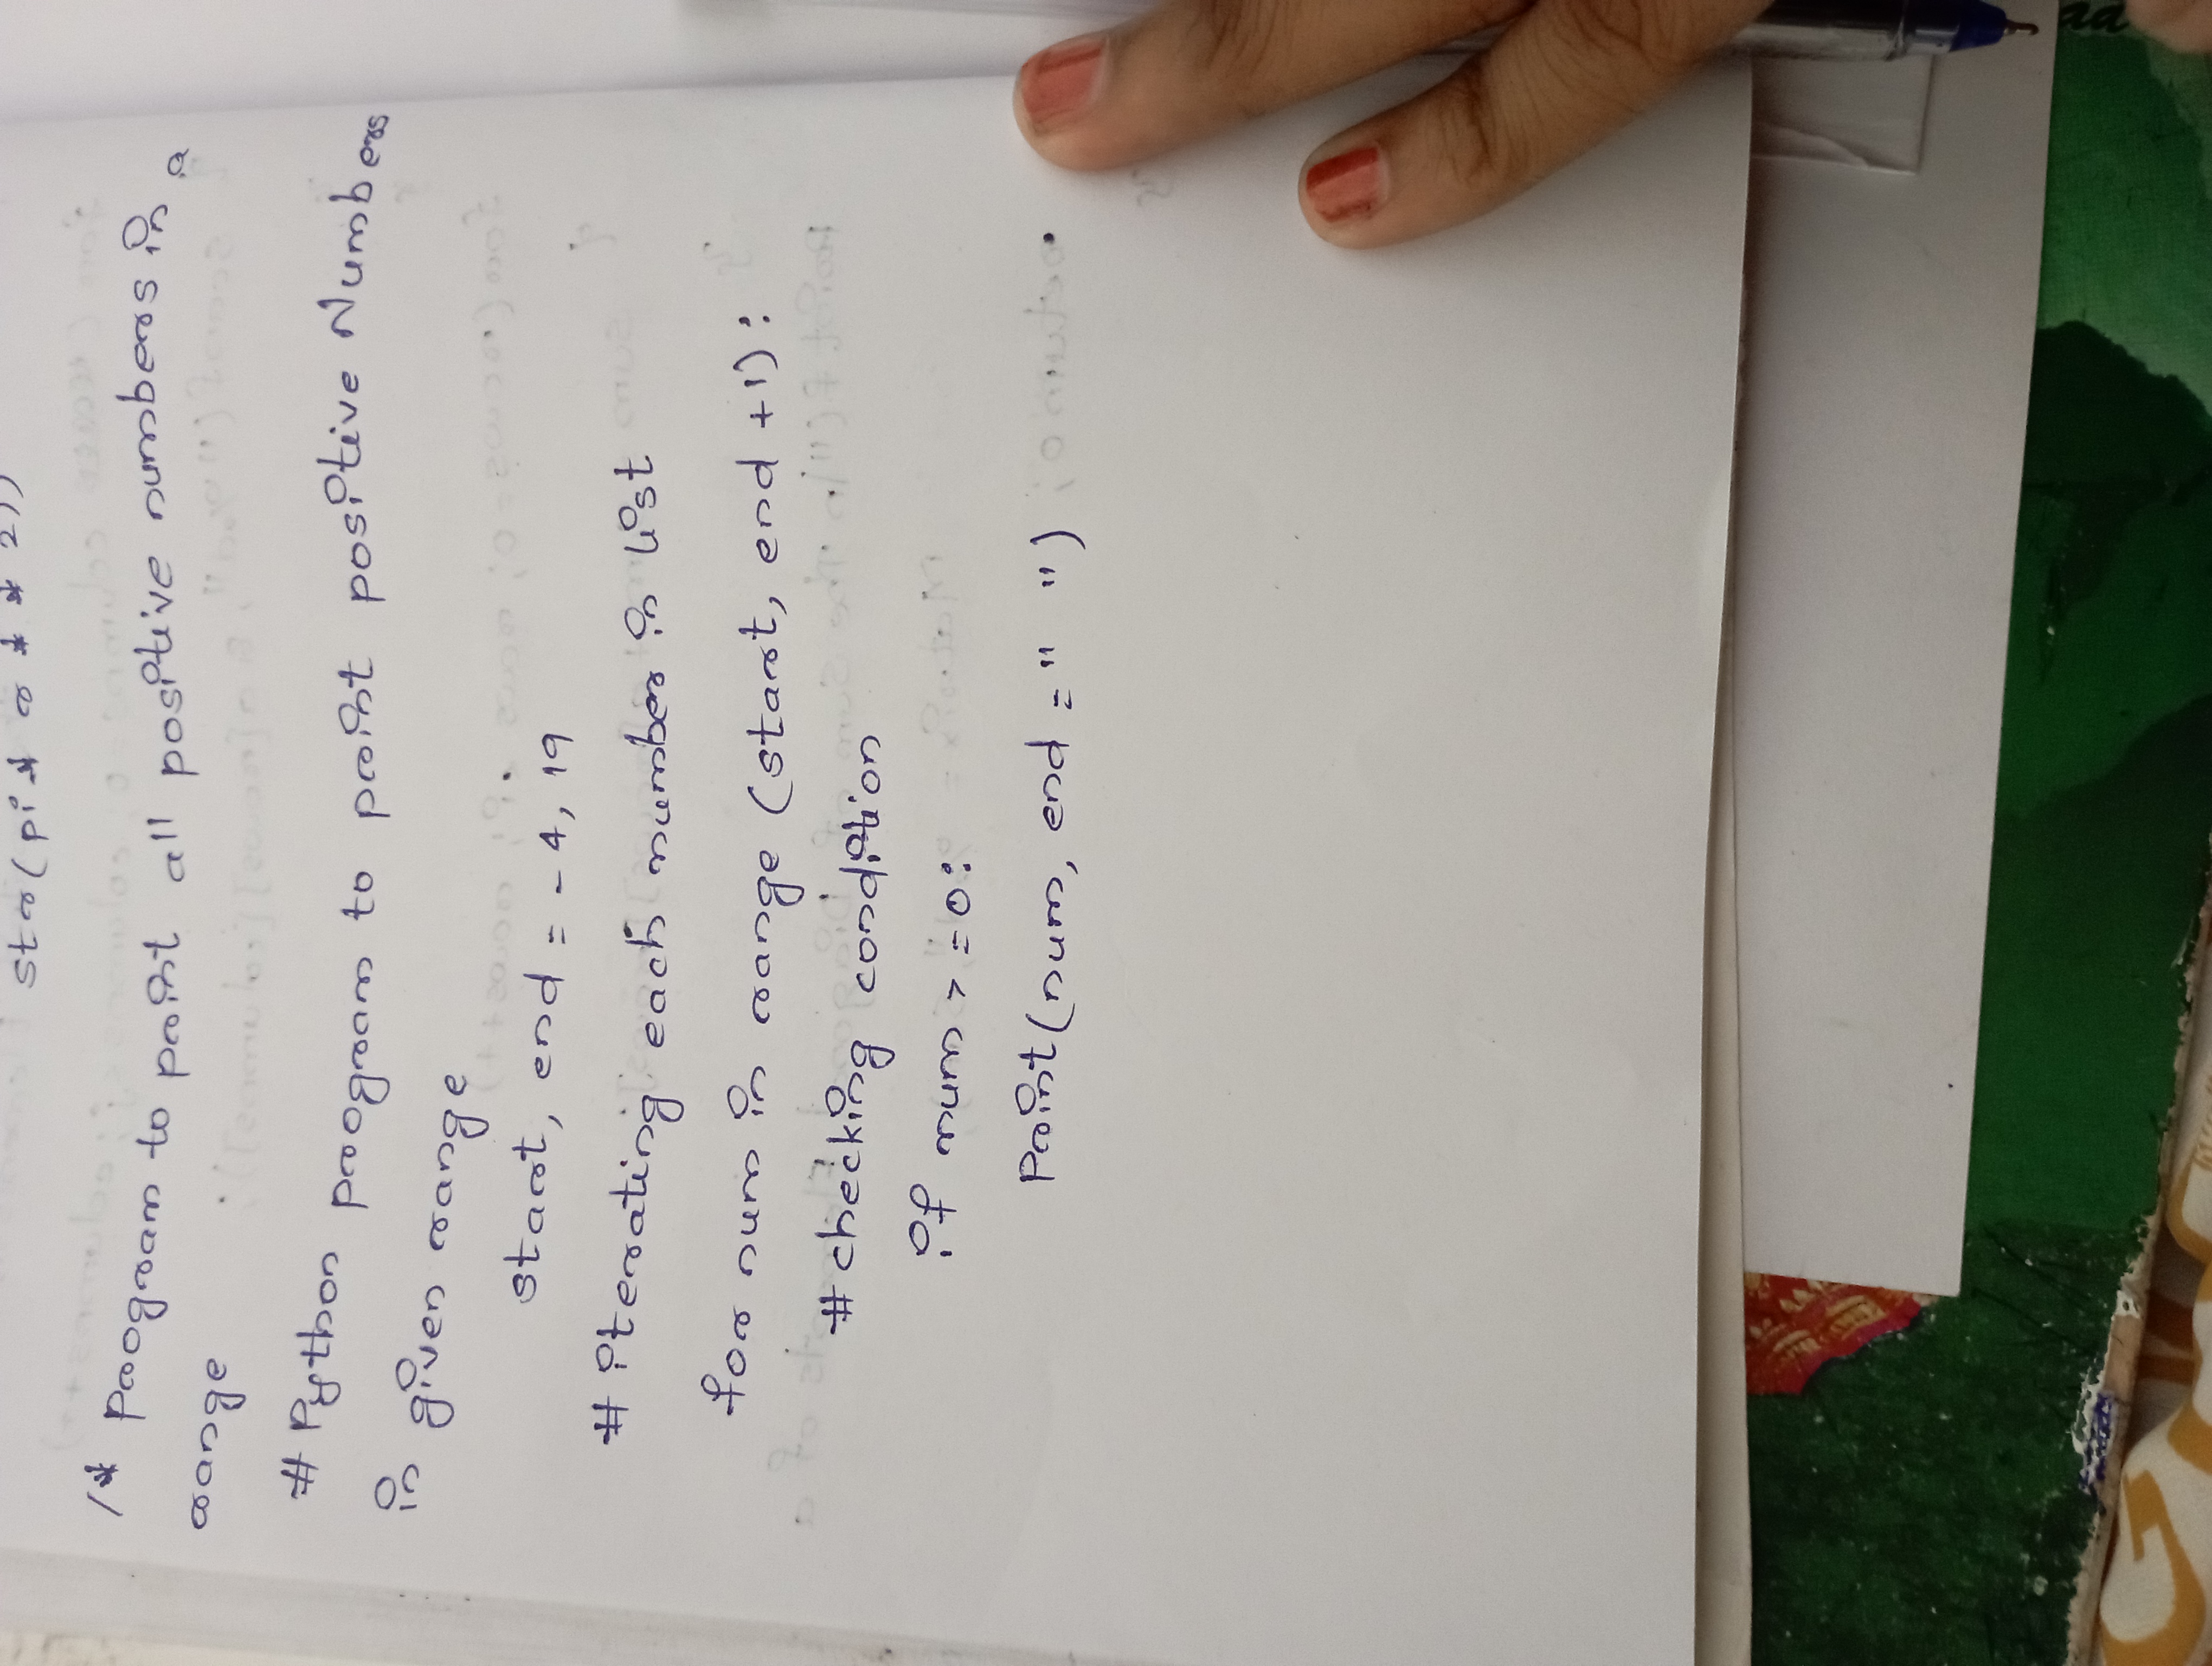 str(pi * r * * 2))
/* program to print all positive numbers in a
range
# Python program to print positive Numbers
in given range
start, end = -4, 19
# iterating each number in list
for num in range (start, end +1):
# checking condition
if num > =0:
Print(num, end = " ")